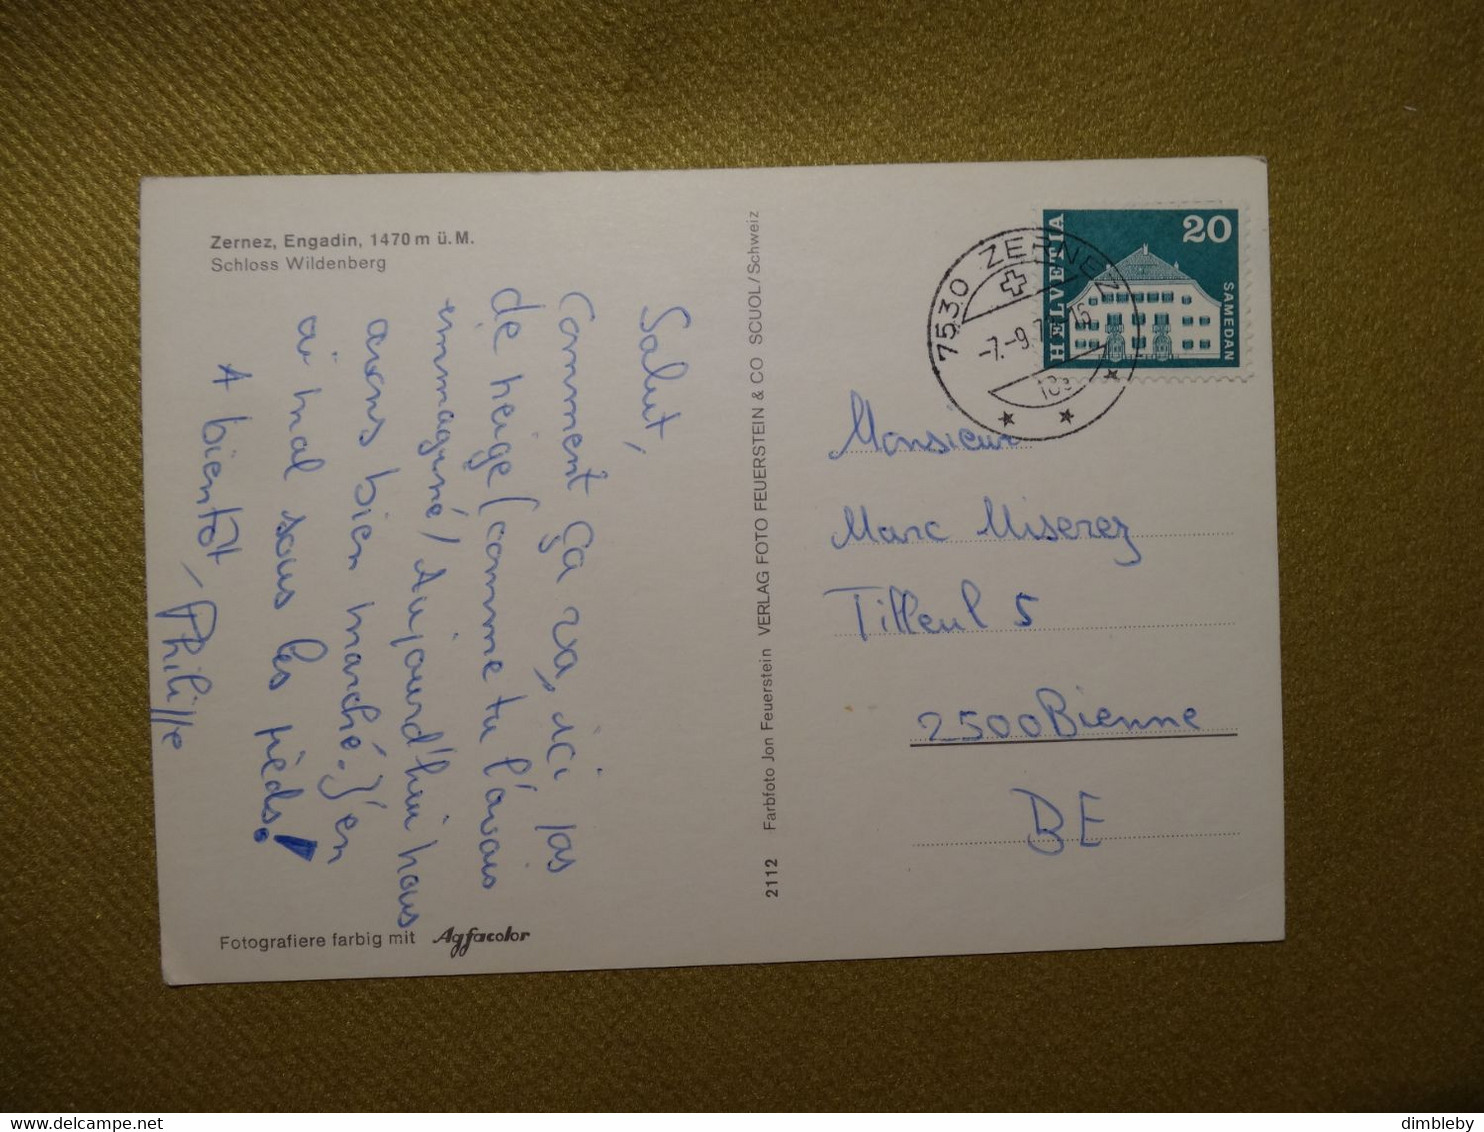 Zernez, Engadin, 1470 m ü. M.
Schloss Wildenberg
Salut,
Comment ça va, ici pas
de neige (comme tu l'avais
immaginé) Aujourd'hui nous
avons bien marché. J'en
ai mal sous les pieds!
A bientôt, Philippe
Fotografiere farbig mit Agfacolor
2112 Farbfoto Jon Feuerstein VERLAG FOTO FEUERSTEIN & CO SCUOL/Schweiz
7530 ZERNEZ
-7.-9.7
15
HELVETIA
20
SAMEDAN
Monsieur
Marc Miserez
Tilleul 5
2500 Bienne
BE
dimbleby